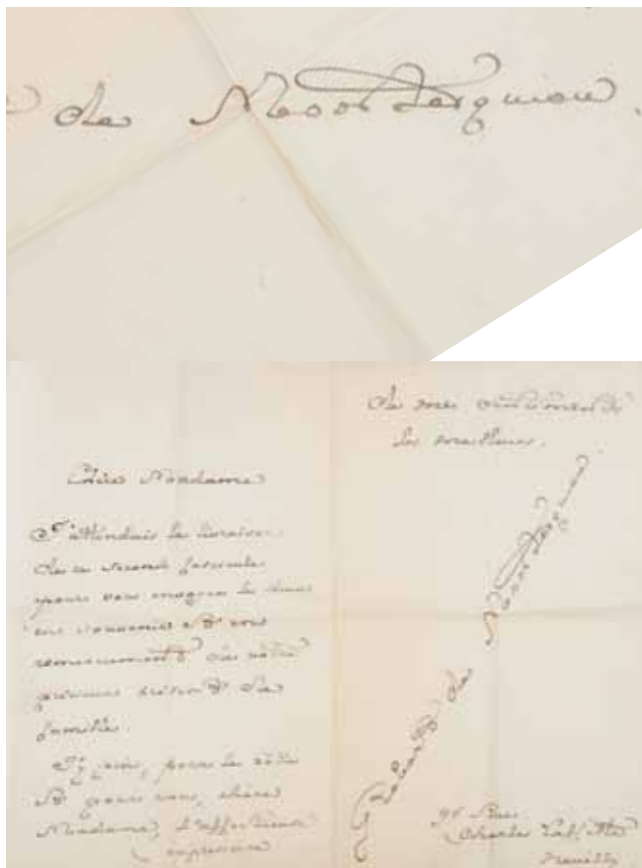 de Montesquiou.
Chère Madame
J'attendais la livraison
de ce second fascicule
pour vous envoyer les deux
en souvenir et en
remerciement de votre
précieux présent de
famille.
J'y joins, pour le vôtre
et pour vous, chère
Madame, l'affectueuse
expression
de mes sentiments
les meilleurs.
Robert de Montesquiou
96 Rue
Charles Laffitte
Neuilly